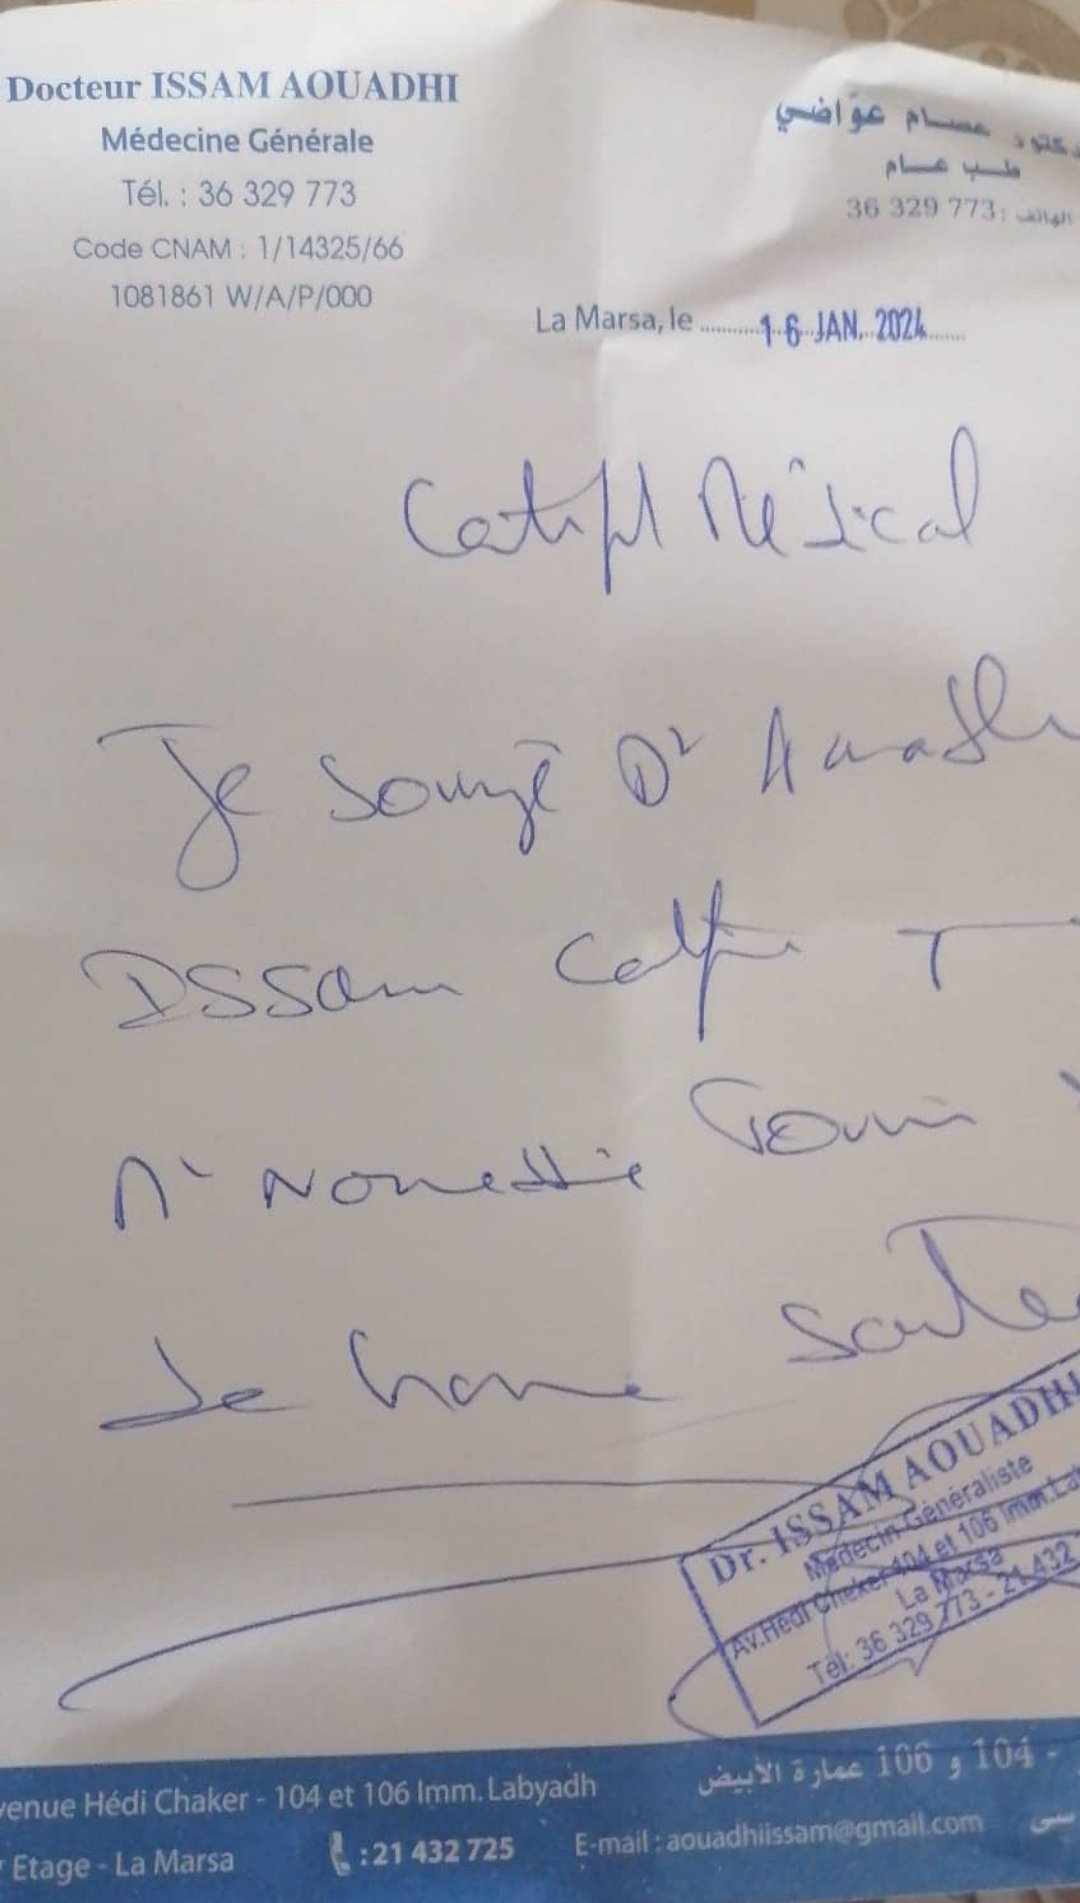 Docteur ISSAM AOUADHI
Médecine Générale
Tél. : 36 329 773
Code CNAM : 1/14325/66
1081861 W/A/P/000
دكتور عصام عوّاضي
طب عام
الهاتف : 36 329 773
La Marsa, le 16 JAN. 2024
Certificat Médical
Je sousigné Dr Aouadhi
Issam Certifie
Mr
de bonne Santé
Dr. ISSAM AOUADHI
Médecin Généraliste
Av.Hédi Cheker 104 et 106 Imm.La
La Marsa
Tél: 36 329 773 - 21 432
venue Hédi Chaker - 104 et 106 Imm. Labyadh
Etage - La Marsa
:21 432 725
E-mail : aouadhiissam@gmail.com
104 - و 106 عمارة الأبيض